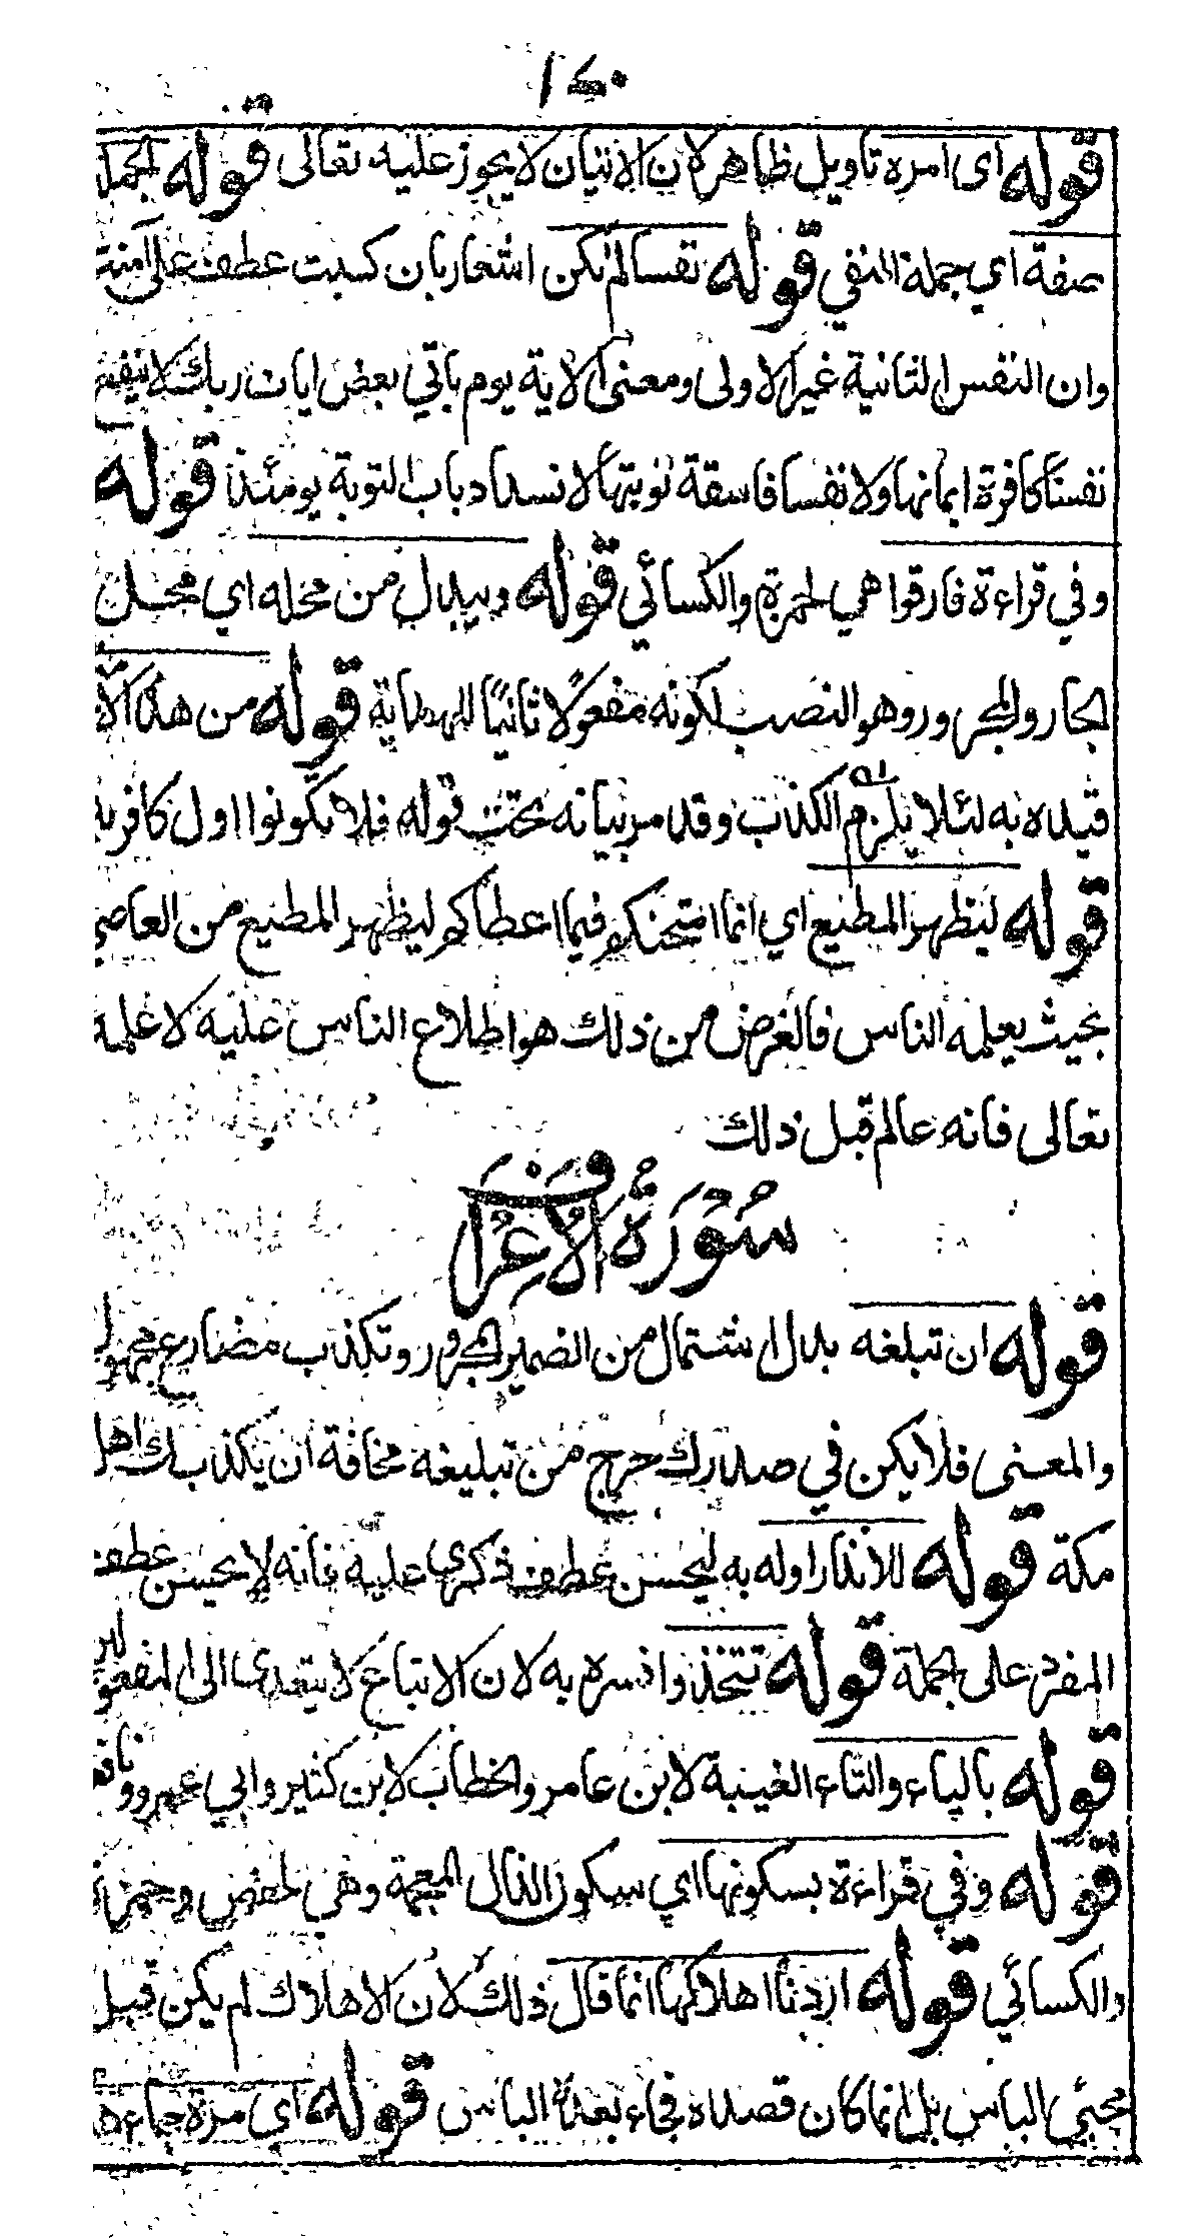 ١٤٠
قوله اى امره تاويل ظاهر لان الاتيان لا يجوز عليه تعالى قوله الجملة
صفة اي جملة النفي قوله نفسا لم تكن اشعار بان كسبت عطف على آمنت
وان النفس الثانية غير الاولى ومعنى الاية يوم ياتي بعض ايات ربك لا ينفع
نفسًا كافرة ايمانها ولا نفسا فاسقة توبتها لانسداد باب التوبة يومئذ قوله
وفي قراءة فارقوا هي لحمزة والكسائي قوله ويبدل من محله اي محل
الجار والمجرور وهو النصب لكونه مفعولا ثانيًا للهداية قوله من هذه الامة
قيده به لئلا يلزم الكذب وقد مر بيانه تحت قوله فلا تكونوا اول كافر به
قوله ليظهر المطيع اي انما امتحنكم فيما اعطاكم ليظهر المطيع من العاصي
بحيث يعلمه الناس فالغرض من ذلك هو اطلاع الناس عليه لا علمه
تعالى فانه عالم قبل ذلك
سُوْرَةُ الْاَعْرَاف
قوله ان تبلغه بدل اشتمال من الضمير المجرور وتكذب مضارع مجهول
والمعنى فلا يكن في صدرك حرج من تبليغه مخافة ان يكذب بك اهل
مكة قوله للانذار اوله به ليحسن عطف ذكرى عليه فانه لا يحسن عطف
المفرد على الجملة قوله تتخذوا فسره به لان الاتباع لا يتعدى الى المفعولين
قوله بالياء والتاء الغيبة لابن عامر والخطاب لابن كثير وابي عمرو ونافع
قوله وفي قراءة بسكونها اي سكون الذال المعجمة وهي لحفص وحمزة
والكسائي قوله اردنا اهلاكها انما قال ذلك لان الاهلاك لم يكن قبل
مجيئ الباس بل انما كان قصداه فجاء بعده الباس قوله اي مرة جاءها